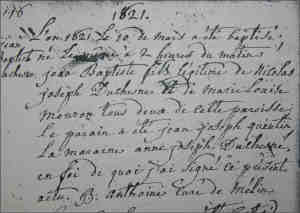 1821.
116
L'an 1821 le 10 de mars a été baptisé
jean
baptist né à 2 heures du matin
duchesne jean Baptiste fils légitime de Nicolas
joseph Duchesne et de marie Louise
mouron tous deux de cette paroisse
le parain a été jean joseph quentin
La maraine anne joseph Duchesne,
en foi de quoi j'ai signé ce présent
acte. B. anthoine Curé de Molin